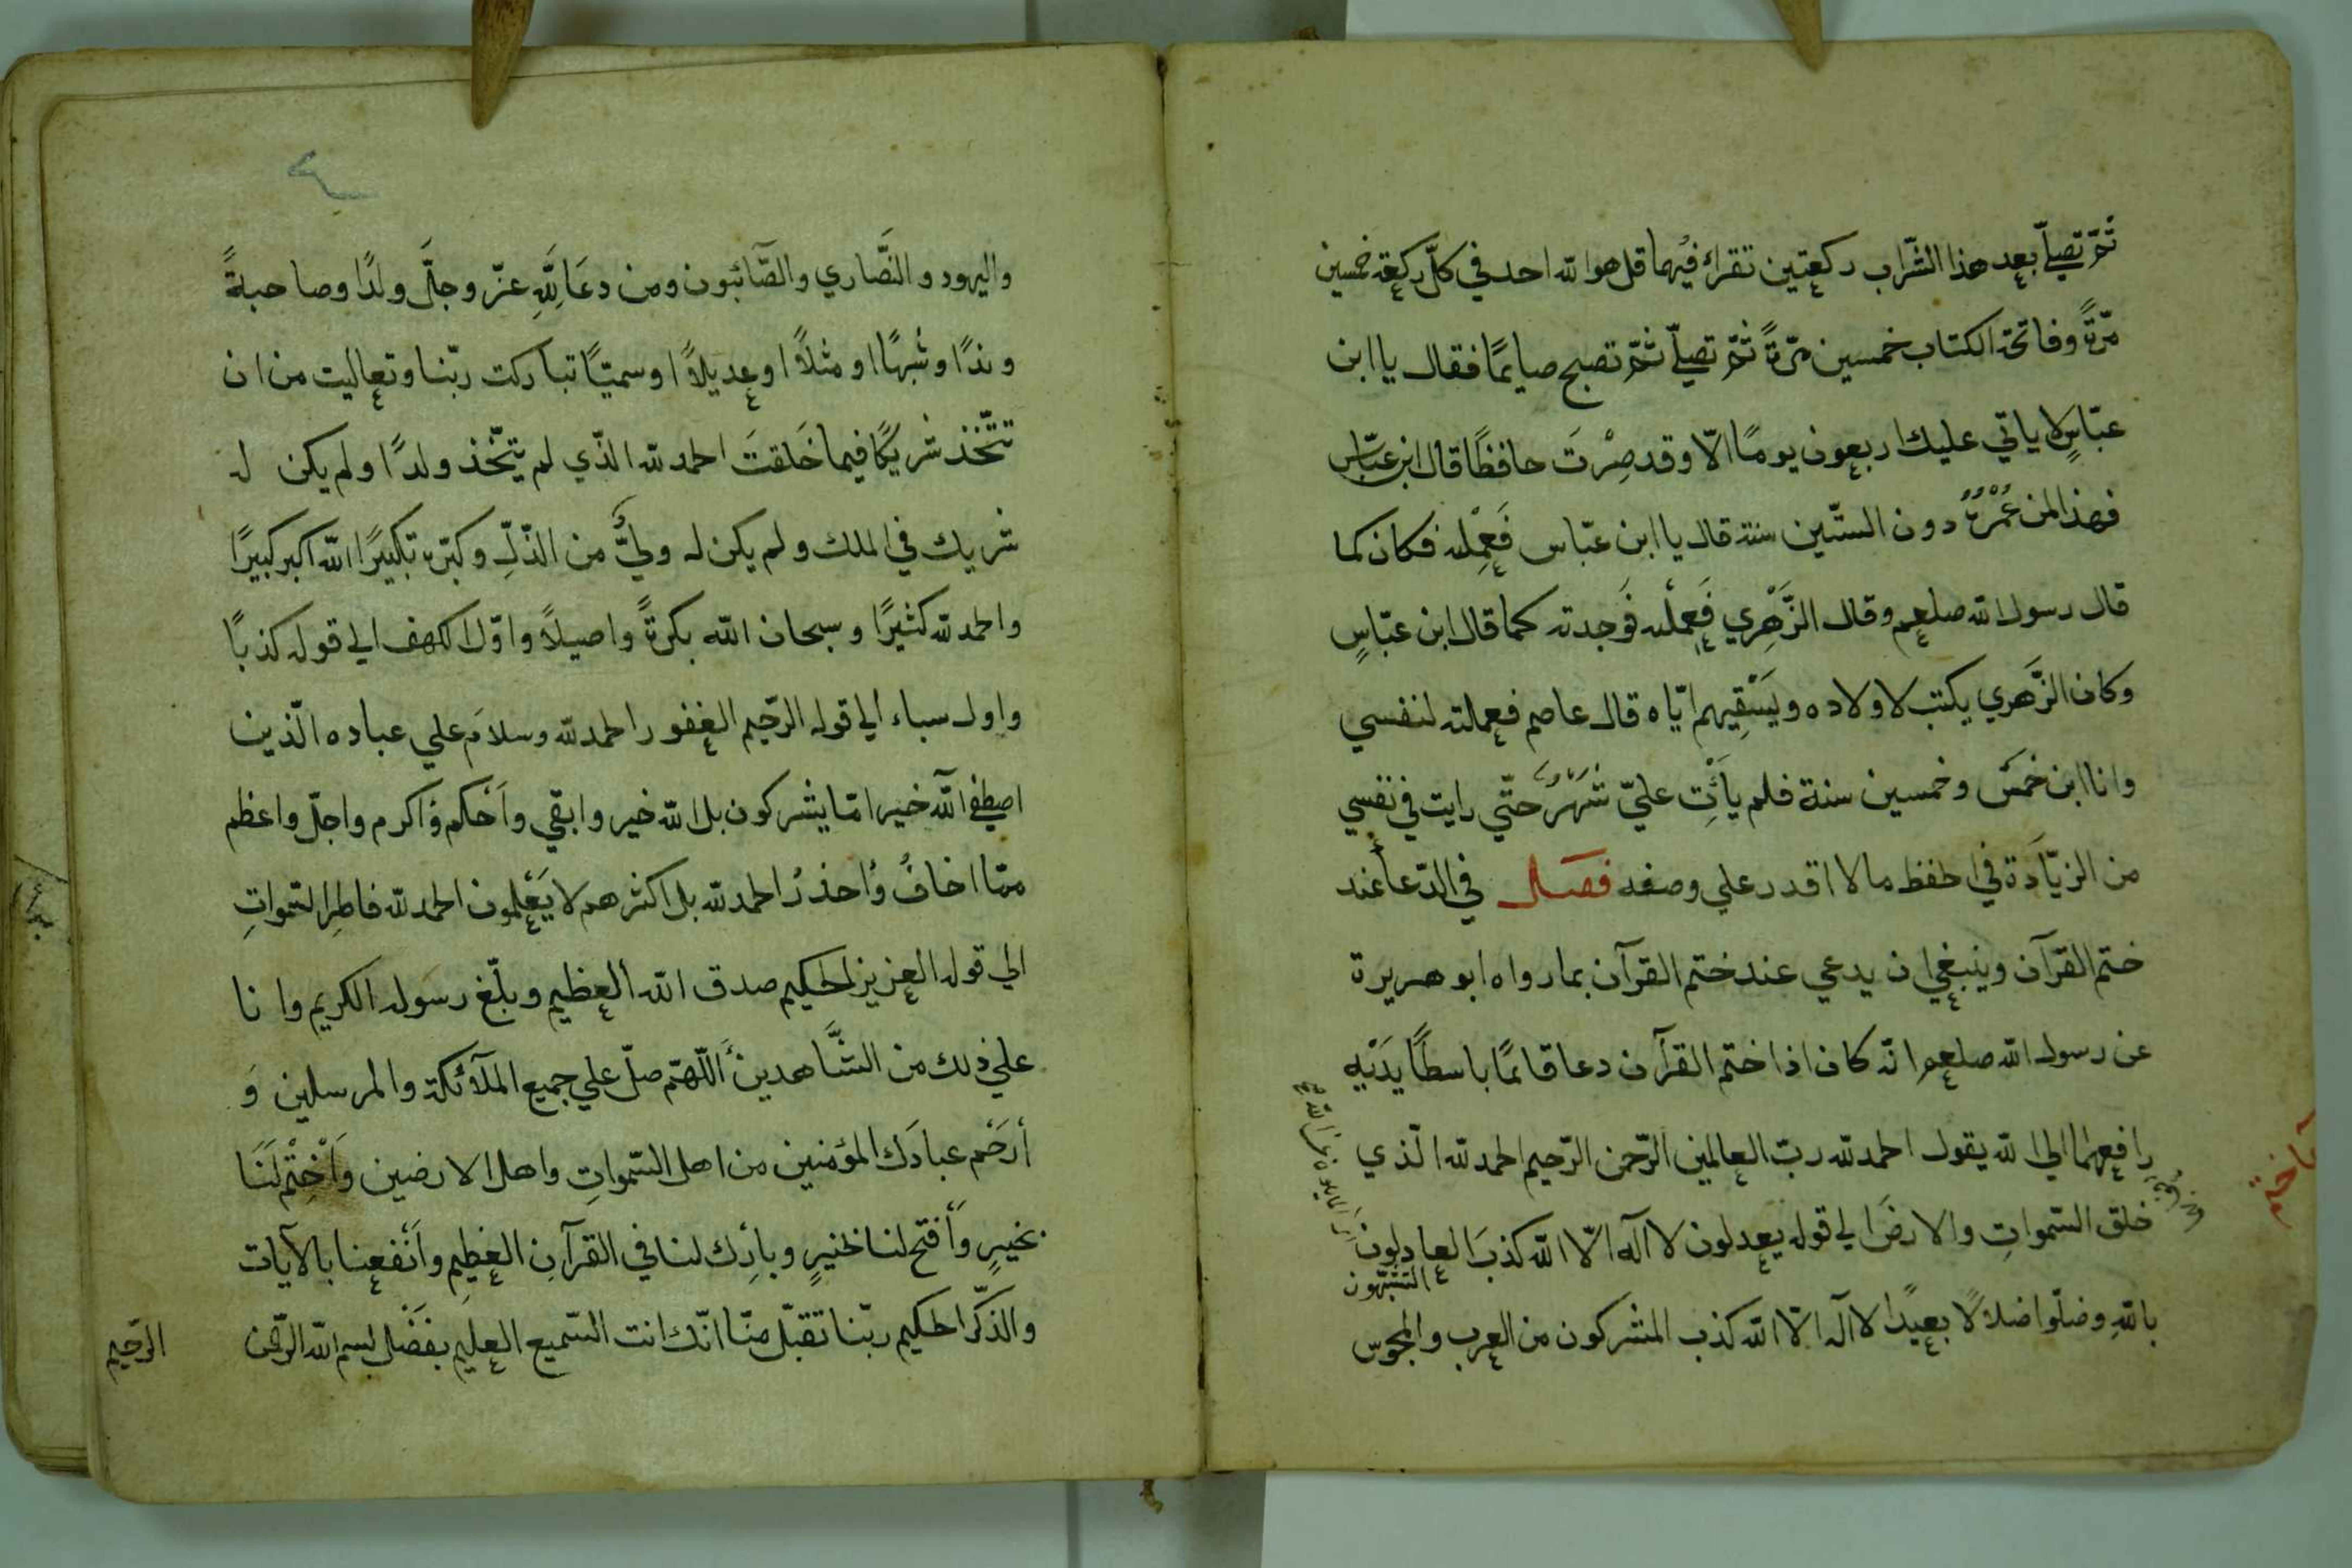 ثمّ تصلّي بعد هذا الشّراب ركعتين تقراء فيهما قل هو الله احد في كلّ ركعة خمسين
مرّةً وفاتحة الكتاب خمسين مرّةً ثمّ تصلّي ثمّ تصبح صايمًا فقال يا ابن
عبّاسٍ لا ياتي عليك اربعون يومًا الّا وقد صِرْتَ حافظًا قال ابن عبّاس
فهذا لمن عُمْرُهُ دون الستّين سنة قال يا ابن عبّاس فَعِمِلته فكان كما
قال رسول الله صلعم وقال الزَّهْرِي فَعِمِلْته فَوجدته كما قال ابن عبّاسٍ
وكان الزَّهري يكتب لاولاده ويَسْقِيهم ايّاه قال عاصم فعملته لنفسي
وانا ابن خمسٍ وخمسين سنة فلم يأتِ عليّ شَهْرٌ حتّي رايت في نفسي
من الزيّادَة في الحفظ ما لا اقدر علي وصفه فصل في الدّعا عند
ختم القرآن وينبغي ان يدعي عند ختم القرآن بما رواه ابو هريرة
عن رسول الله صلعم انّه كان اذا ختم القرآن دعا قائمًا باسطًا يَدَيْهِ
رافعهما الي الله يقول الحمد لله ربّ العالمين الرّحمن الرّحيم الحمد لله الّذي
خلق السّمواتِ والارضَ الي قوله يعدلون لا آله الّا الله كذبَ العادلون
بالله وضلّوا ضلالًا بعيدًا لا آله الّا الله كذب المشركون من العرب والمجوس
واليهود والنَّصَاري والصّآئبون ومن دعَا لِلّهِ عزّ وجلّ ولدًا وصاحبةً
وندًا وشبهًا او مثلًا او عديلًا او سميّا تباركت ربّنا وتعاليت من ان
تتّخذ شريكًا فيما خَلقتَ الحمد لله الذّي لم يتّخذ ولدًا ولم يكن له
شريك في الملك ولم يكن له وليٌّ من الذّلِّ وكبّره تكبيرًا الله اكبر كبيرًا
والحمد لله كثيرًا وسبحان الله بكرةً واصيلًا واوّل الكهف الي قوله كذبًا
واول سباء الي قوله الرّحيم الغفور الحمد لله وسلامٌ علي عباده الّذين
اصطفي آلله خير امّا يشركون بل الله خير وابقي واَحْكم واكرم واجلّ واعظم
ممّا اخافُ واُحذرُ الحمد لله بل اكثرهم لا يَعْلمون الحمد لله فاطرِ السّمواتِ
الي قوله العزيز الحكيم صدق الله العظيم وبلّغ رسوله الكريم وانا
علي ذلك من الشَّاهدين اللّهمّ صلّ علي جميع الملآئكة والمرسلين وَ
أرحَم عبادَك المؤمنين من اهل السّمواتِ واهل الارضين وَاخْتِم لَنَا
بخيرٍ وَأفتح لنا بخيرٍ وبارِك لنا في القرآنِ العظيمِ واَنْفعنا بالآيات
والذّكر الحكيم ربّنا تقبّل منّا انّك انت السّميع العليم بفَضْل بسم الله الرّحمن
الرّحيم